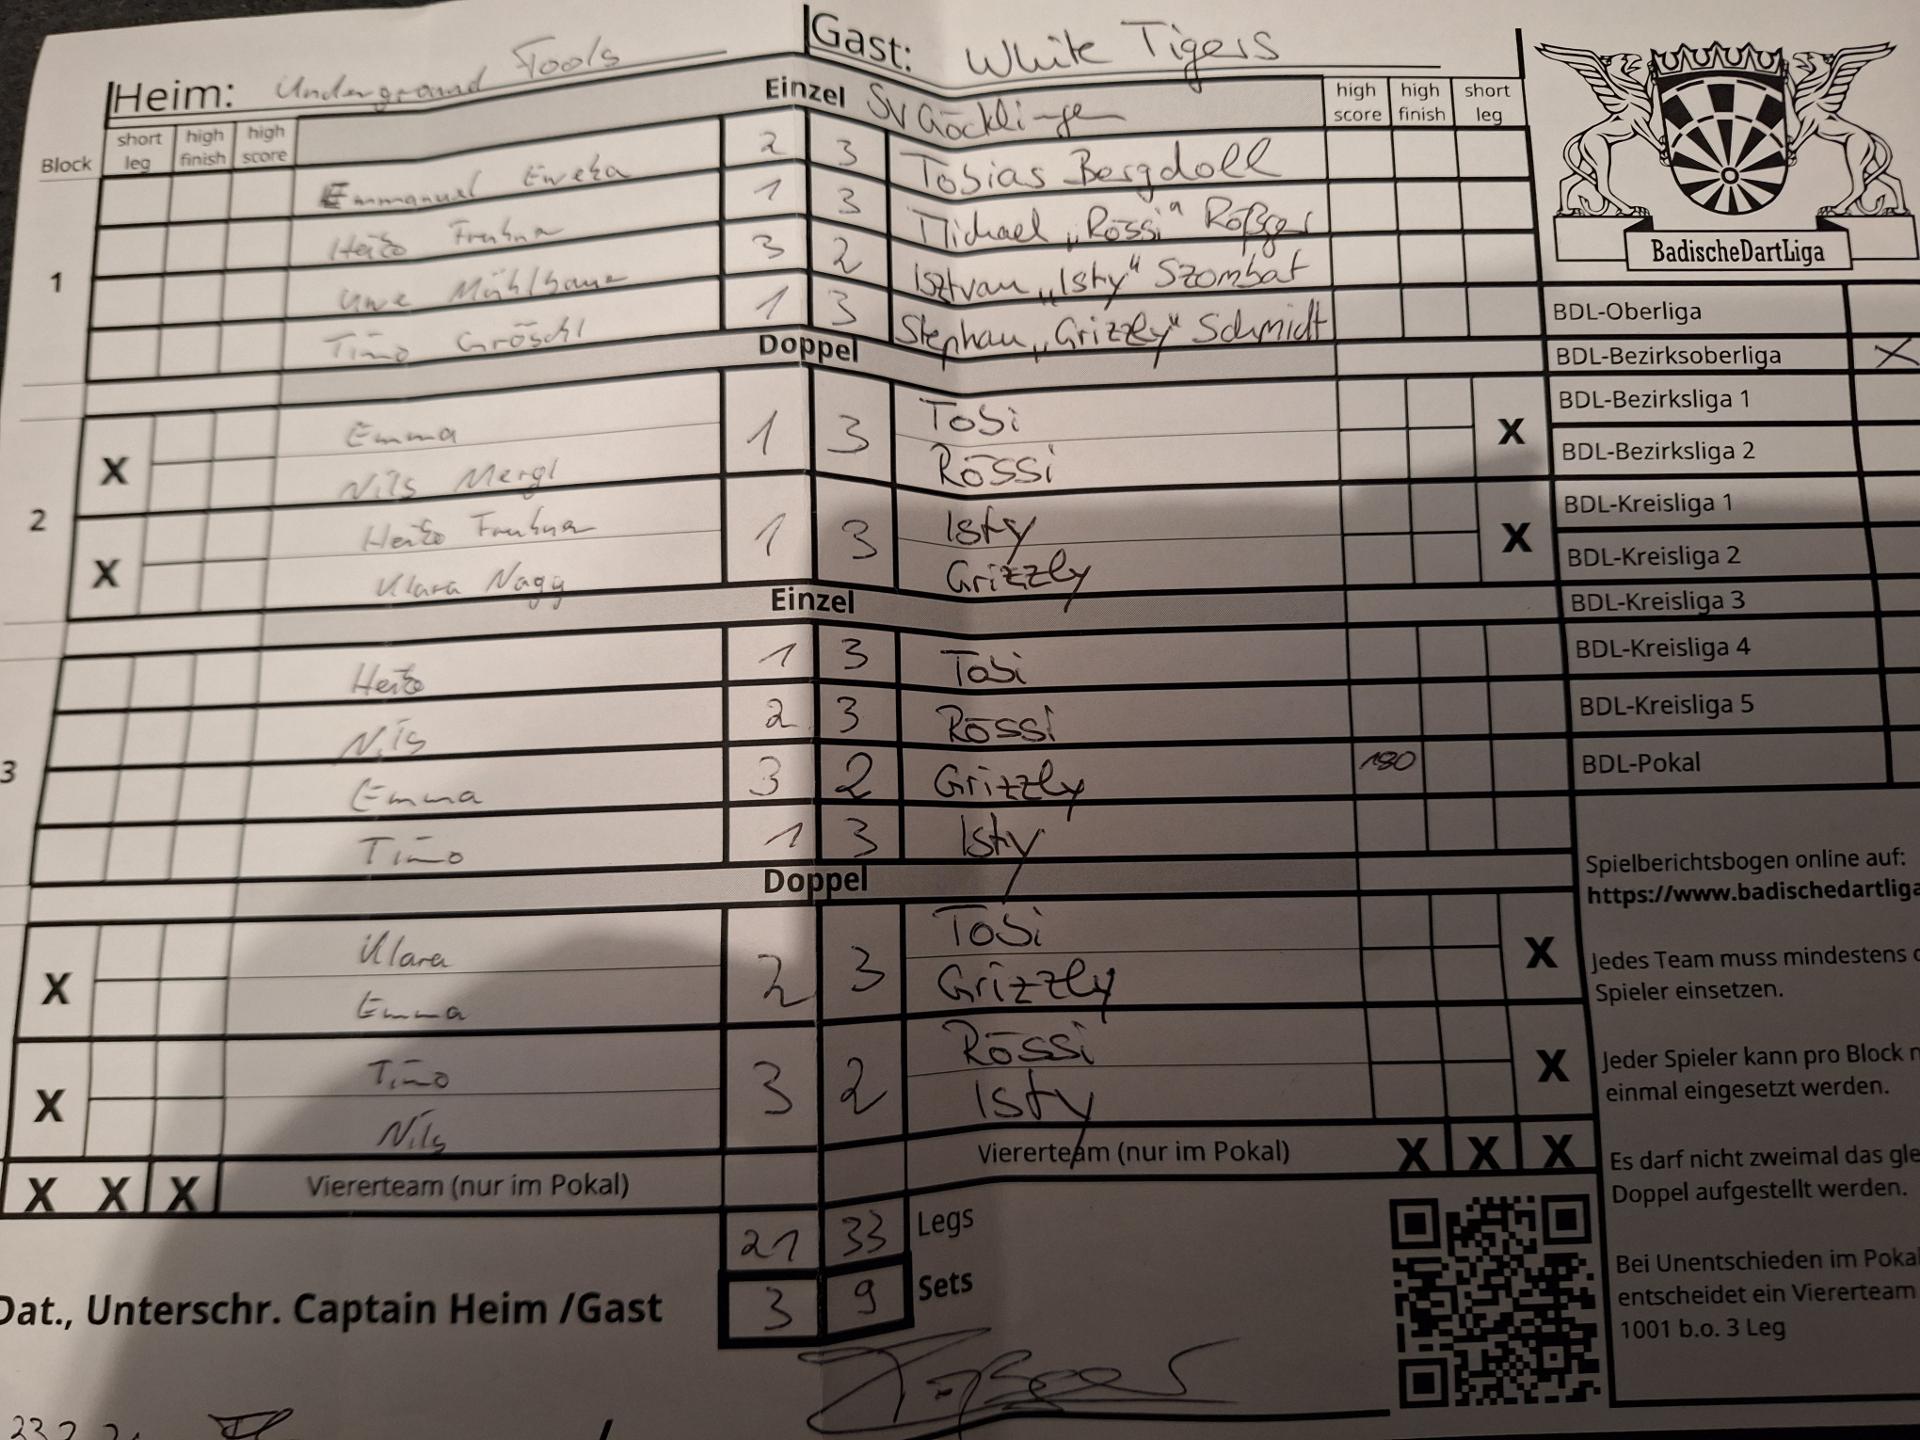 Heim: Underground Fools Gast: White Tigers
Einzel SV Göcklingen
Block short leg high finish high score high score high finish short leg
1
Emmanuel Eweka 2 3 Tobias Bergdoll
Heiko 1 3 Michael "Rössi" Rößger
Uwe 3 2 Isztvan "Isty" Szombat
Timo Gröschl 1 3 Stephan "Grizzly" Schmidt
Doppel
2
X Emma 1 3 Tobi X
Nils Mergl Rössi
X Heiko 1 3 Isty X
Klara Nagy Grizzly
Einzel
3
Heiko 1 3 Tobi
Nils 2 3 Rössi
Emma 3 2 Grizzly 180
Timo 1 3 Isty
Doppel
X Klara 2 3 Tobi X
Emma Grizzly
X Timo 3 2 Rössi X
Nils Isty
X X X Viererteam (nur im Pokal) Viererteam (nur im Pokal) X X X
21 33 Legs
3 9 Sets
Dat., Unterschr. Captain Heim /Gast
BadischeDartLiga
BDL-Oberliga
BDL-Bezirksoberliga X
BDL-Bezirksliga 1
BDL-Bezirksliga 2
BDL-Kreisliga 1
BDL-Kreisliga 2
BDL-Kreisliga 3
BDL-Kreisliga 4
BDL-Kreisliga 5
BDL-Pokal
Spielberichtsbogen online auf:
https://www.badischedartliga
Jedes Team muss mindestens
Spieler einsetzen.
Jeder Spieler kann pro Block
einmal eingesetzt werden.
Es darf nicht zweimal das gle
Doppel aufgestellt werden.
Bei Unentschieden im Pokal
entscheidet ein Viererteam
1001 b.o. 3 Leg